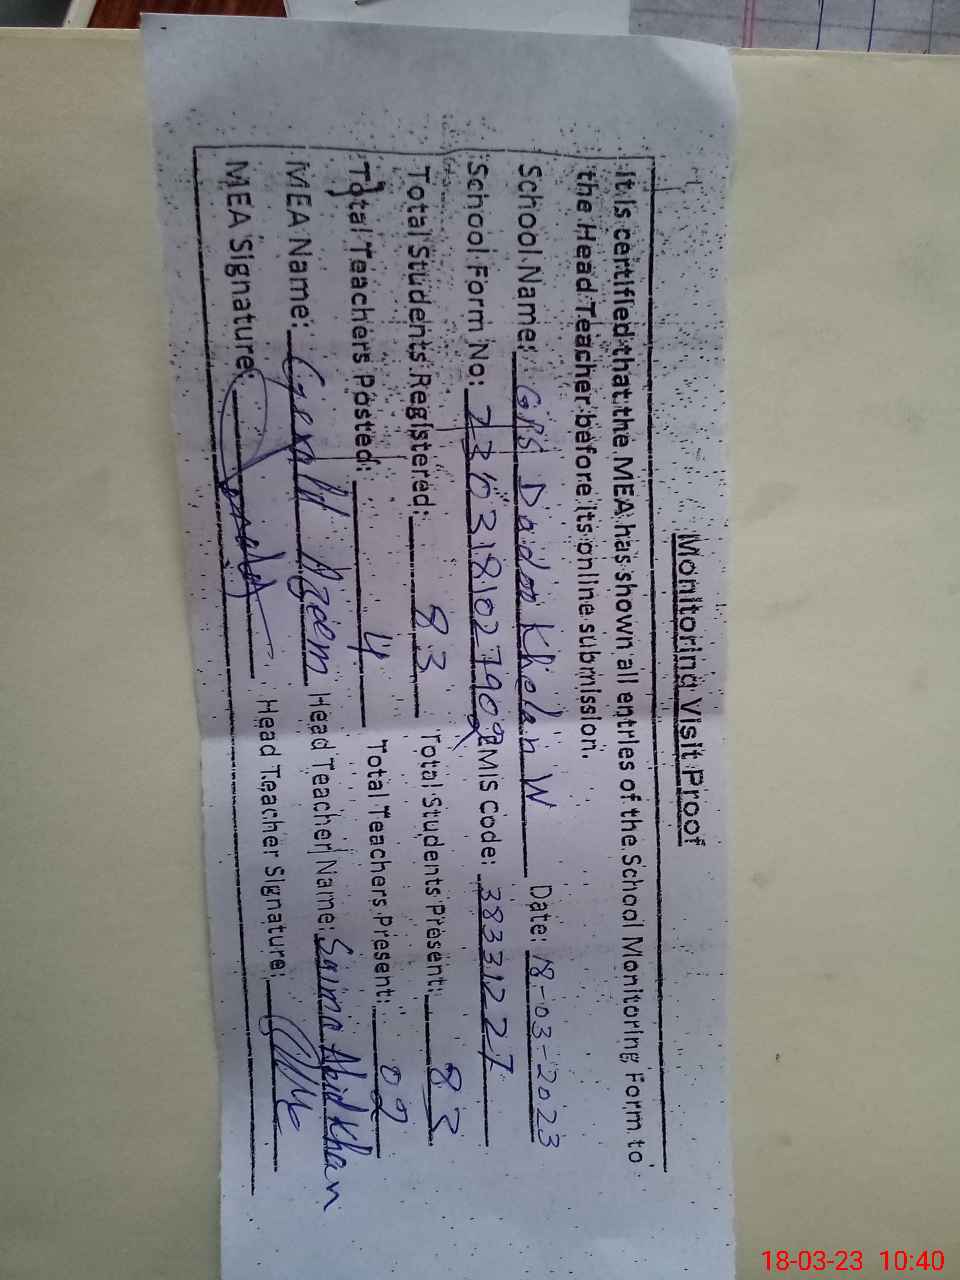 Monitoring Visit Proof
It is certified that the MEA has shown all entries of the School Monitoring Form to
the Head Teacher before its online submission.
School Name: GPS Dadoo Khelan W Date: 18-03-2023
School Form No: EMIS Code: 38331227
Total Students Registered: 83 Total Students Present: 83
Total Teachers Posted: 4 Total Teachers Present: 02
MEA Name: Azeem Head Teacher Name: Saima Abid Khan
MEA Signature: Head Teacher Signature:
18-03-23 10:40